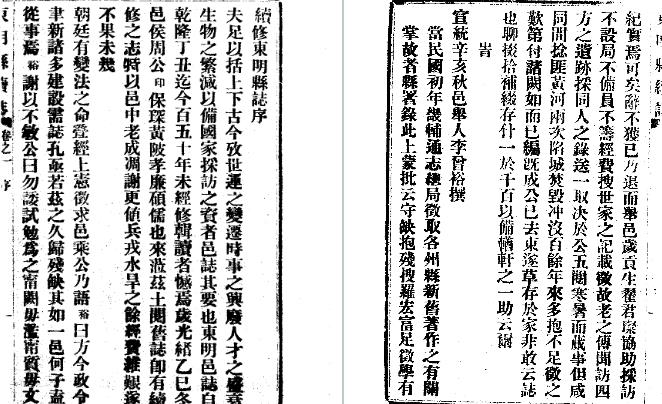 續修東明縣誌序
夫足以括上下古今攷世運之變遷時事之興廢人才之盛衰
生物之繁減以備國家採訪之資者邑誌其要也東明邑誌自
乾隆丁丑迄今百五十年未經修輯讀者憾焉歲光緒乙巳冬
邑侯周公印保琛黃陂孝廉碩儒也來涖茲土閱舊誌卽有續
修之志特以邑中老成凋謝更値兵戎水旱之餘經費維艱遂
不果未幾
朝廷有變法之命疊經上憲徵求邑乘公乃語裕曰方今政令
聿新諸多建設需誌孔亟若茲之久歸殘缺其如一邑何子盍
從事焉裕謝以不敏公曰勿諉試勉爲之甯闕毋濫甯質毋文
東明縣續誌 卷之一 序
紀實焉可矣辭不獲已乃退而舉邑歲貢生翟君琛協助採訪
不設局不備員不籌經費搜世家之記載徵故老之傳聞訪四
方之遺跡採同人之錄送一取決於公五閱寒暑而蕆事但咸
同間捻匪黃河兩次陷城焚毀冲沒百餘年來多抱不足徵之
歎第付諸闕如而已編旣成公已去東遂草存於家非敢云誌
也聊後拾補綴存什一於千百以備輶軒之一助云爾
旹
宣統辛亥秋邑舉人李曾裕撰
當民國初年畿輔通志總局徵取各州縣新舊著作之有關
掌故者縣署錄此上蒙批云守缺抱殘搜羅宏富足徵學有